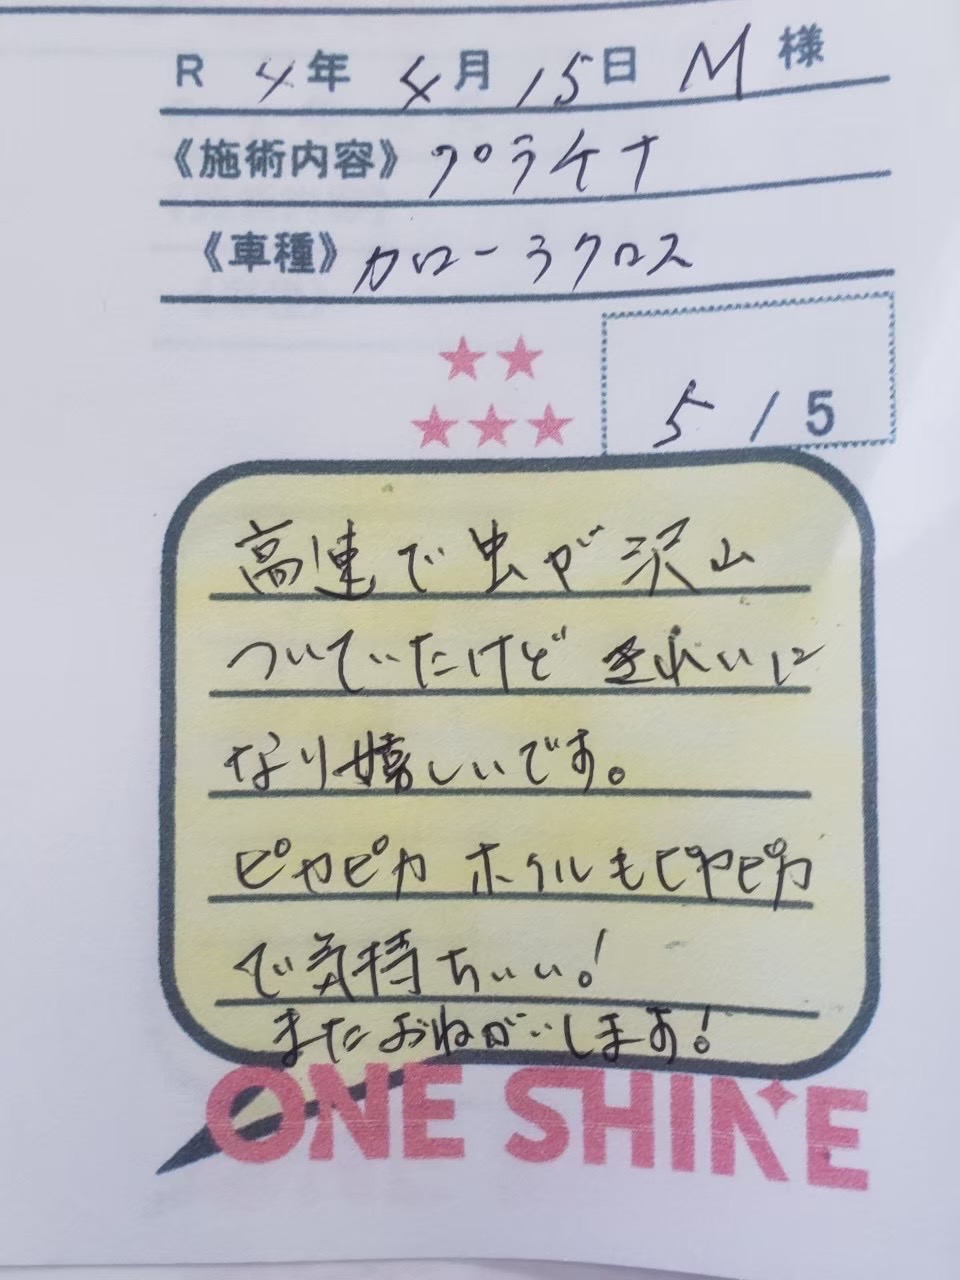 R 4年 4月 15日 M 様
《施術内容》 プラチナ
《車種》 カローラクロス
5 / 5
高速で虫が沢山
ついていたけど きれいに
なり嬉しいです。
ピカピカ ホイルもピカピカ
で気持ちいい!
またおねがいします!
ONE SHINE